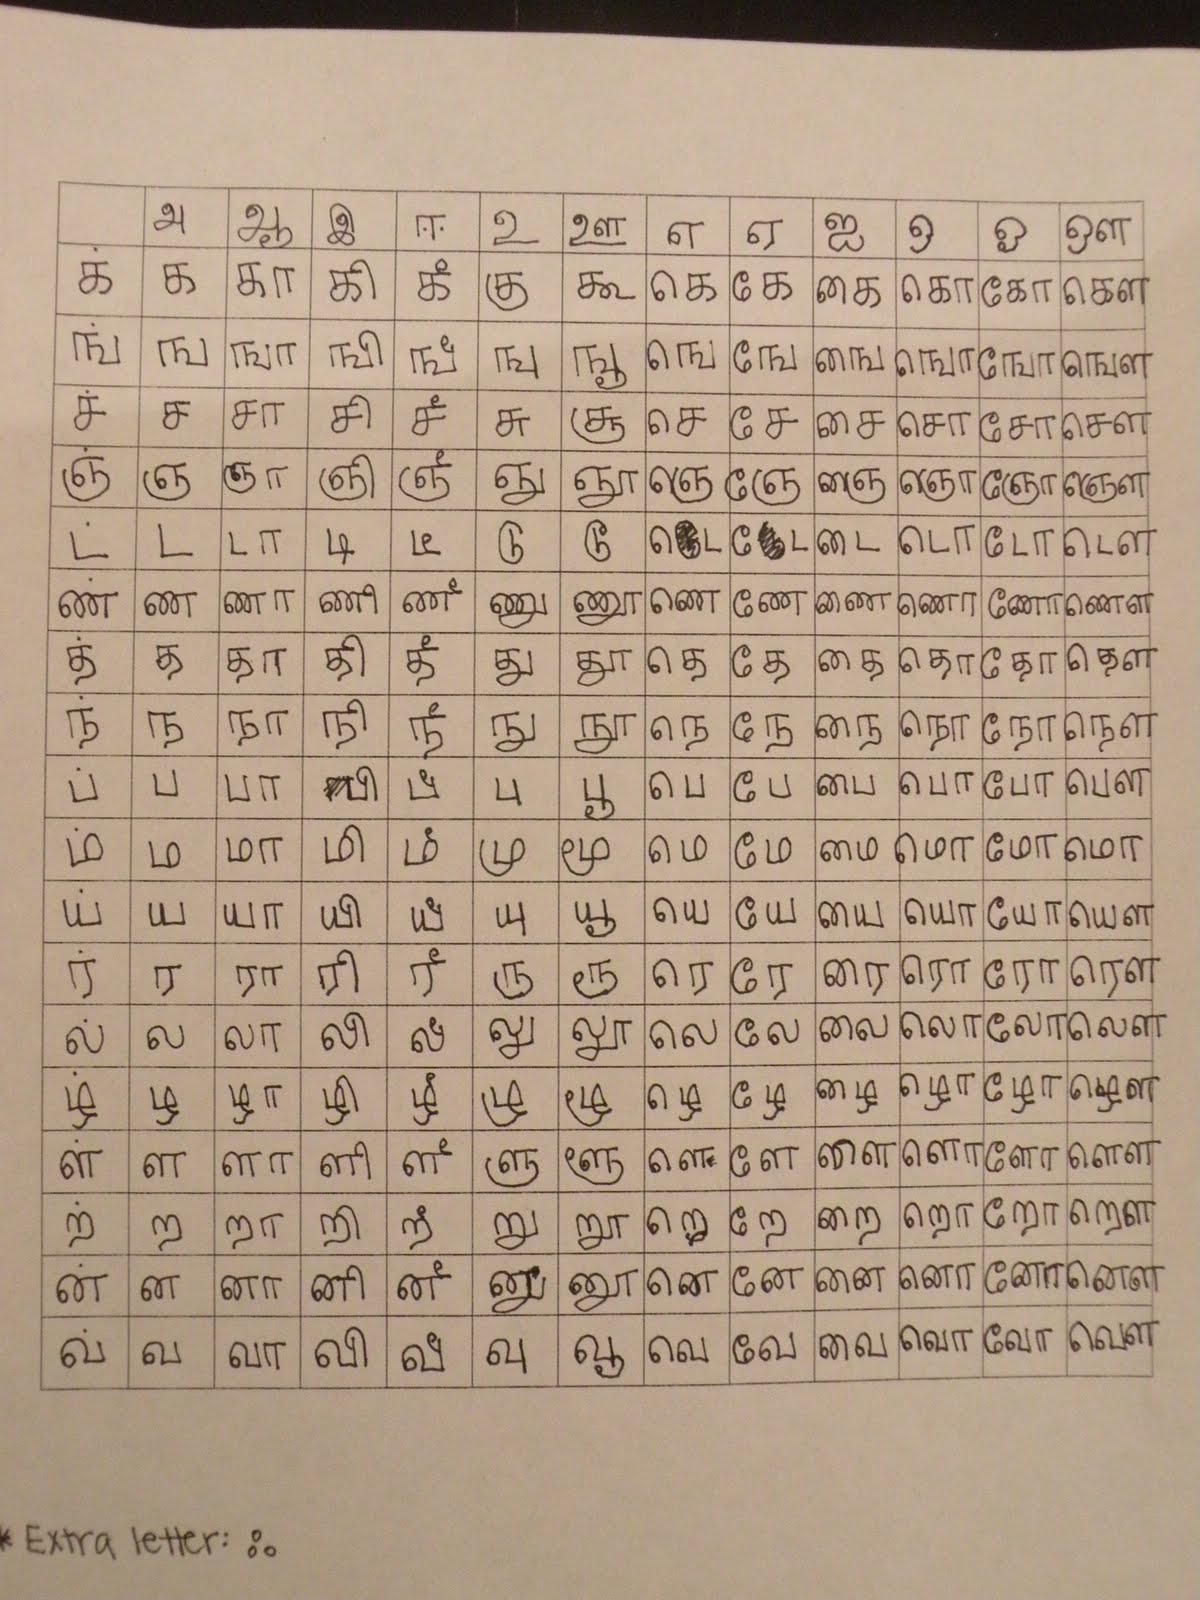 அ ஆ இ ஈ உ ஊ எ ஏ ஐ ஒ ஓ ஔ
க் க கா கி கீ கு கூ கெ கே கை கொ கோ கௌ
ங் ங ஙா ஙி ஙீ ஙு ஙூ ஙெ ஙே ஙை ஙொ ஙோ ஙௌ
ச் ச சா சி சீ சு சூ செ சே சை சொ சோ சௌ
ஞ் ஞ ஞா ஞி ஞீ ஞு ஞூ ஞெ ஞே ஞை ஞொ ஞோ ஞௌ
ட் ட டா டி டீ டு டூ டெ டே டை டொ டோ டௌ
ண் ண ணா ணி ணீ ணு ணூ ணெ ணே ணை ணொ ணோ ணௌ
த் த தா தி தீ து தூ தெ தே தை தொ தோ தௌ
ந் ந நா நி நீ நு நூ நெ நே நை நொ நோ நௌ
ப் ப பா பி பீ பு பூ பெ பே பை பொ போ பௌ
ம் ம மா மி மீ மு மூ மெ மே மை மொ மோ மொ
ய் ய யா யி யீ யு யூ யெ யே யை யொ யோ யௌ
ர் ர ரா ரி ரீ ரு ரூ ரெ ரே ரை ரொ ரோ ரௌ
ல் ல லா லி லீ லு லூ லெ லே லை லொ லோ லௌ
ழ் ழ ழா ழி ழீ ழு ழூ ழெ ழே ழை ழொ ழோ ழௌ
ள் ள ளா ளி ளீ ளு ளூ ளெ ளே ளை ளொ ளோ ளௌ
ற் ற றா றி றீ று றூ றெ றே றை றொ றோ றௌ
ன் ன னா னி னீ னு னூ னெ னே னை னொ னோ னௌ
வ் வ வா வி வீ வு வூ வெ வே வை வொ வோ வௌ
* Extra letter: ஃ